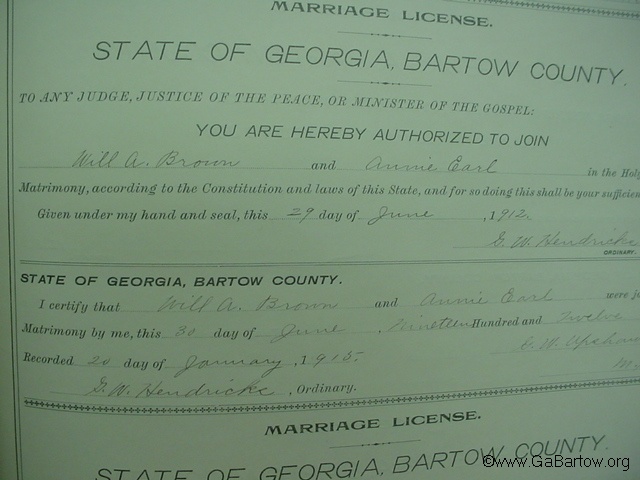 MARRIAGE LICENSE.
STATE OF GEORGIA, BARTOW COUNTY.
TO ANY JUDGE, JUSTICE OF THE PEACE, OR MINISTER OF THE GOSPEL:
YOU ARE HEREBY AUTHORIZED TO JOIN
Will A. Brown and Annie Earl in the Holy
Matrimony, according to the Constitution and laws of this State, and for so doing this shall be your sufficien
Given under my hand and seal, this 29 day of June, 1912.
G. W. Hendricks
ORDINARY.
STATE OF GEORGIA, BARTOW COUNTY.
I certify that Will A. Brown and Annie Earl were jo
Matrimony by me, this 30 day of June, Nineteen Hundred and Twelve
Recorded 20 day of January, 1915. W. Upshaw
G. W. Hendricks, Ordinary.
MARRIAGE LICENSE.
STATE OF GEORGIA, BARTOW COUNTY.
©www.GaBartow.org